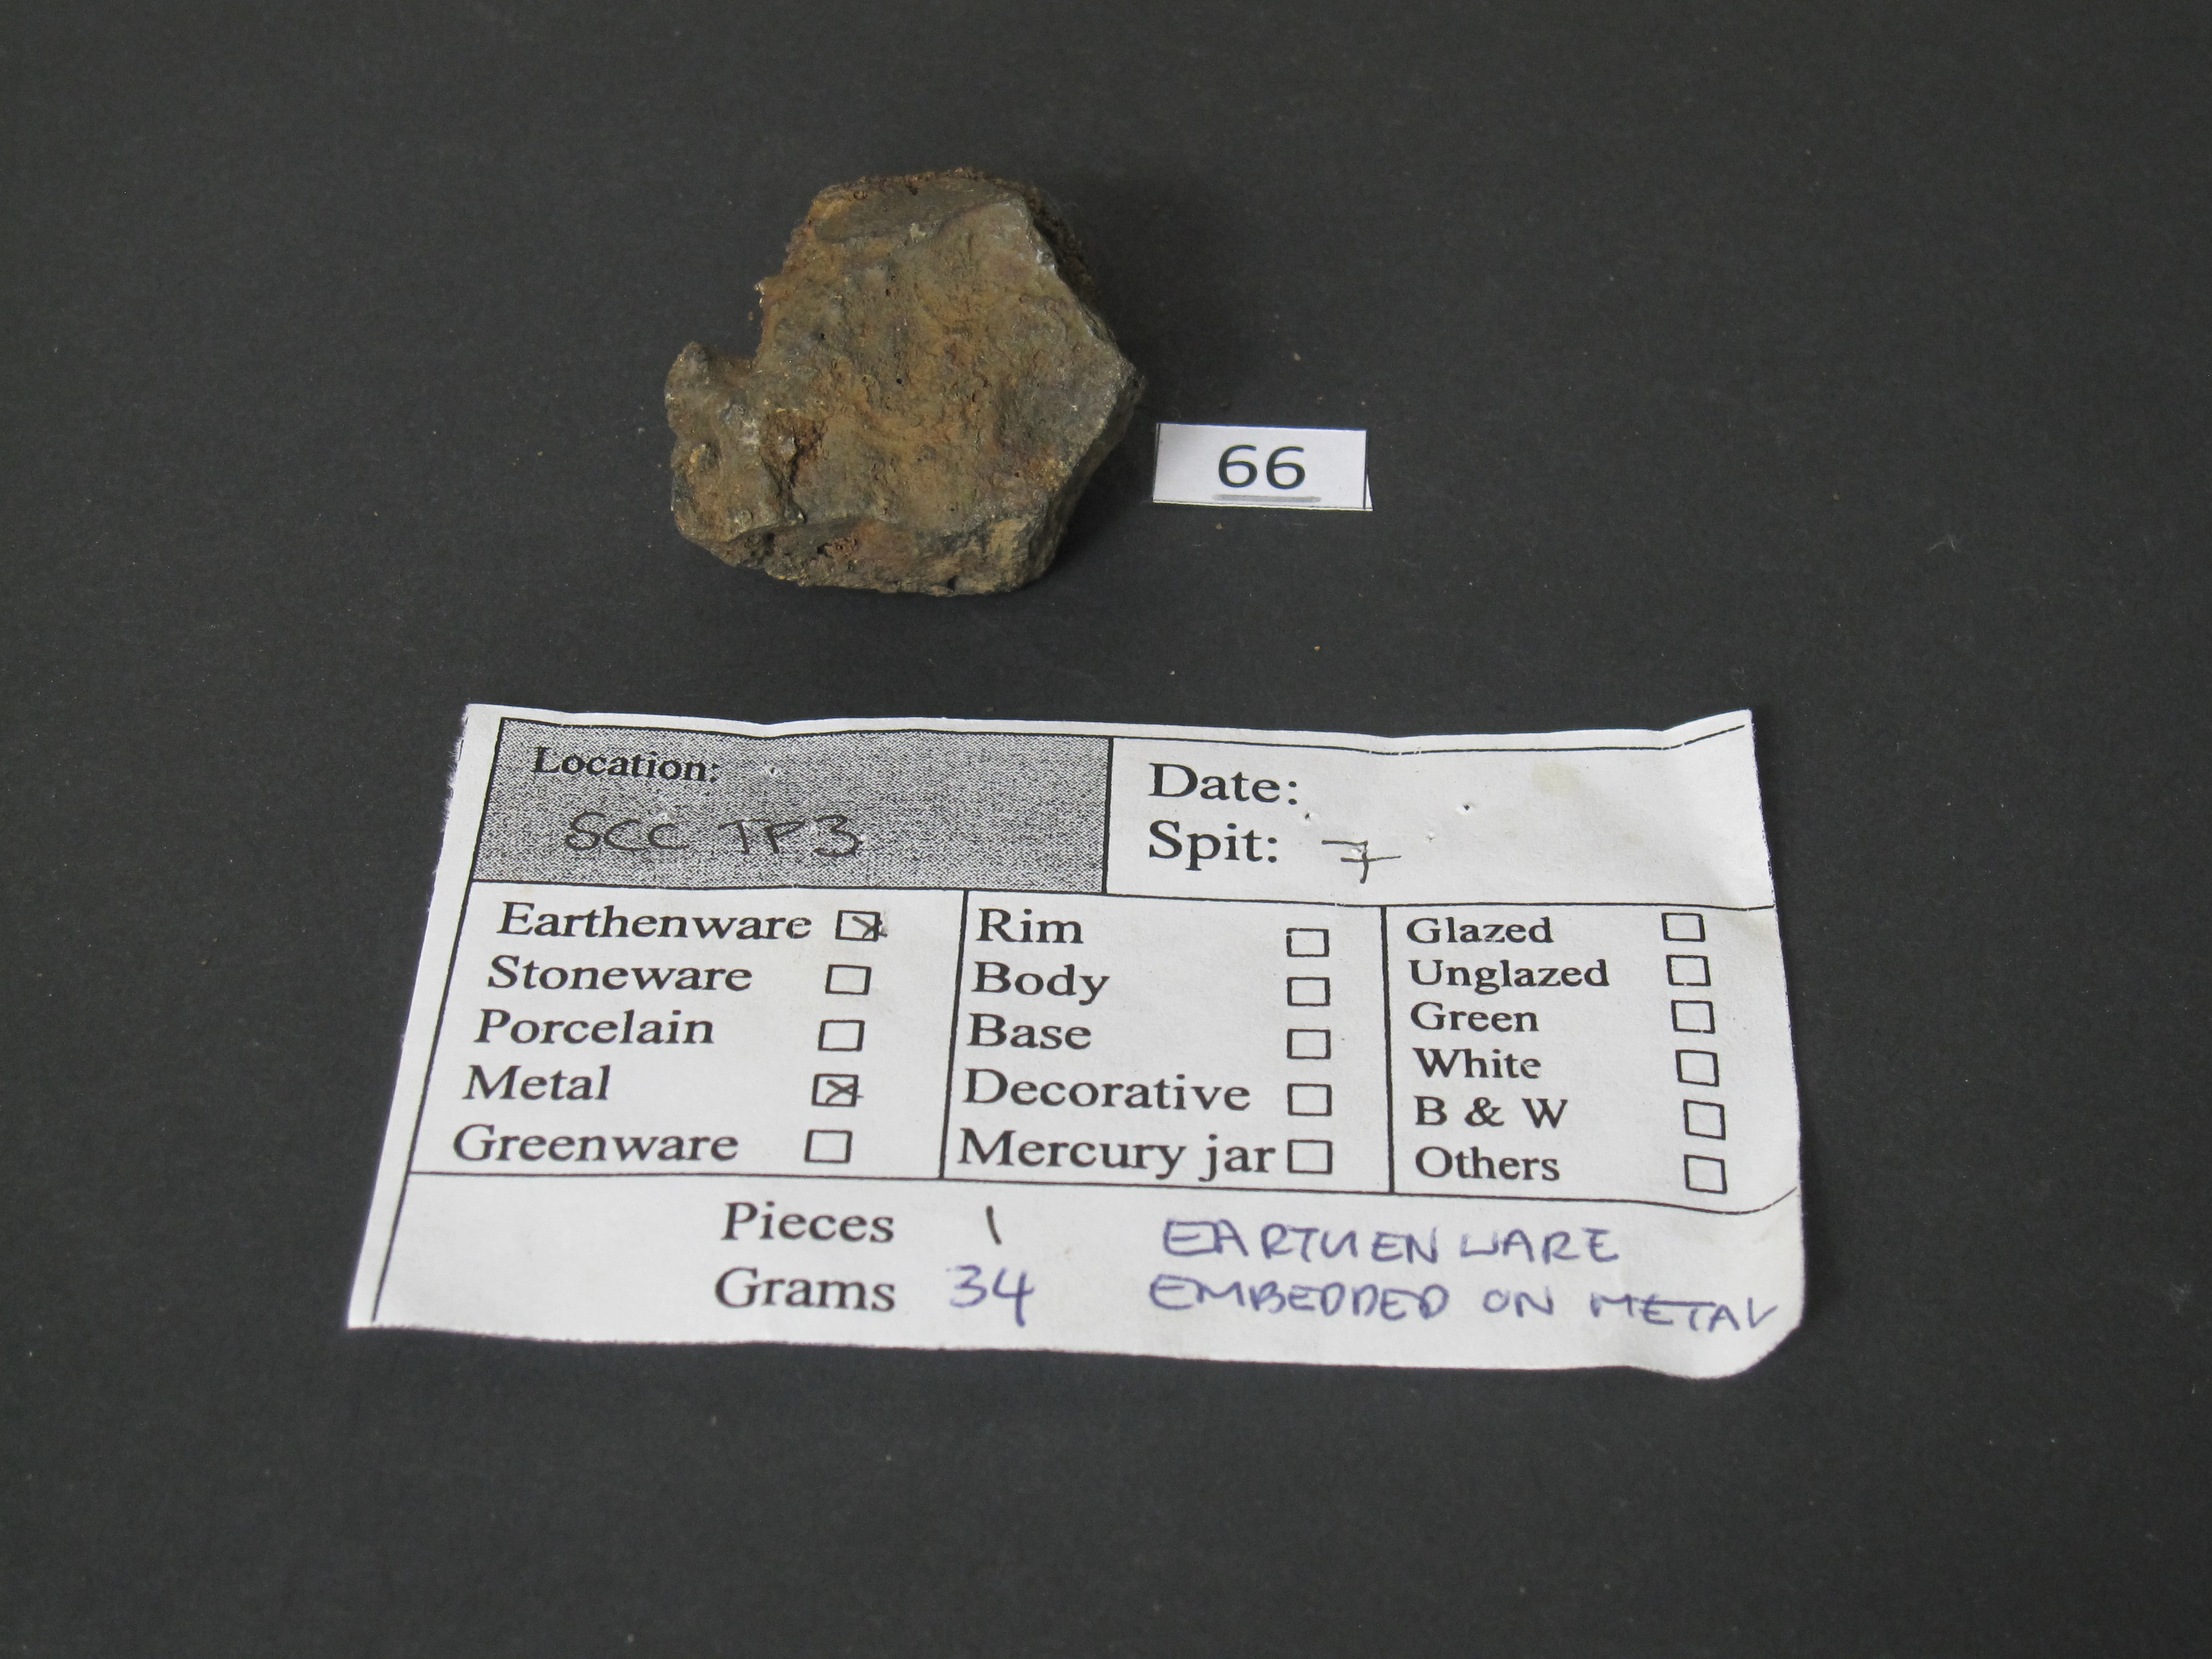 66
Location:
SCC TP3
Date:
Spit: 7
Earthenware ☒
Stoneware ☐
Porcelain ☐
Metal ☒
Greenware ☐
Rim ☐
Body ☐
Base ☐
Decorative ☐
Mercury jar ☐
Glazed ☐
Unglazed ☐
Green ☐
White ☐
B & W ☐
Others ☐
Pieces 1
Grams 34
EARTHENWARE
EMBEDDED ON METAL